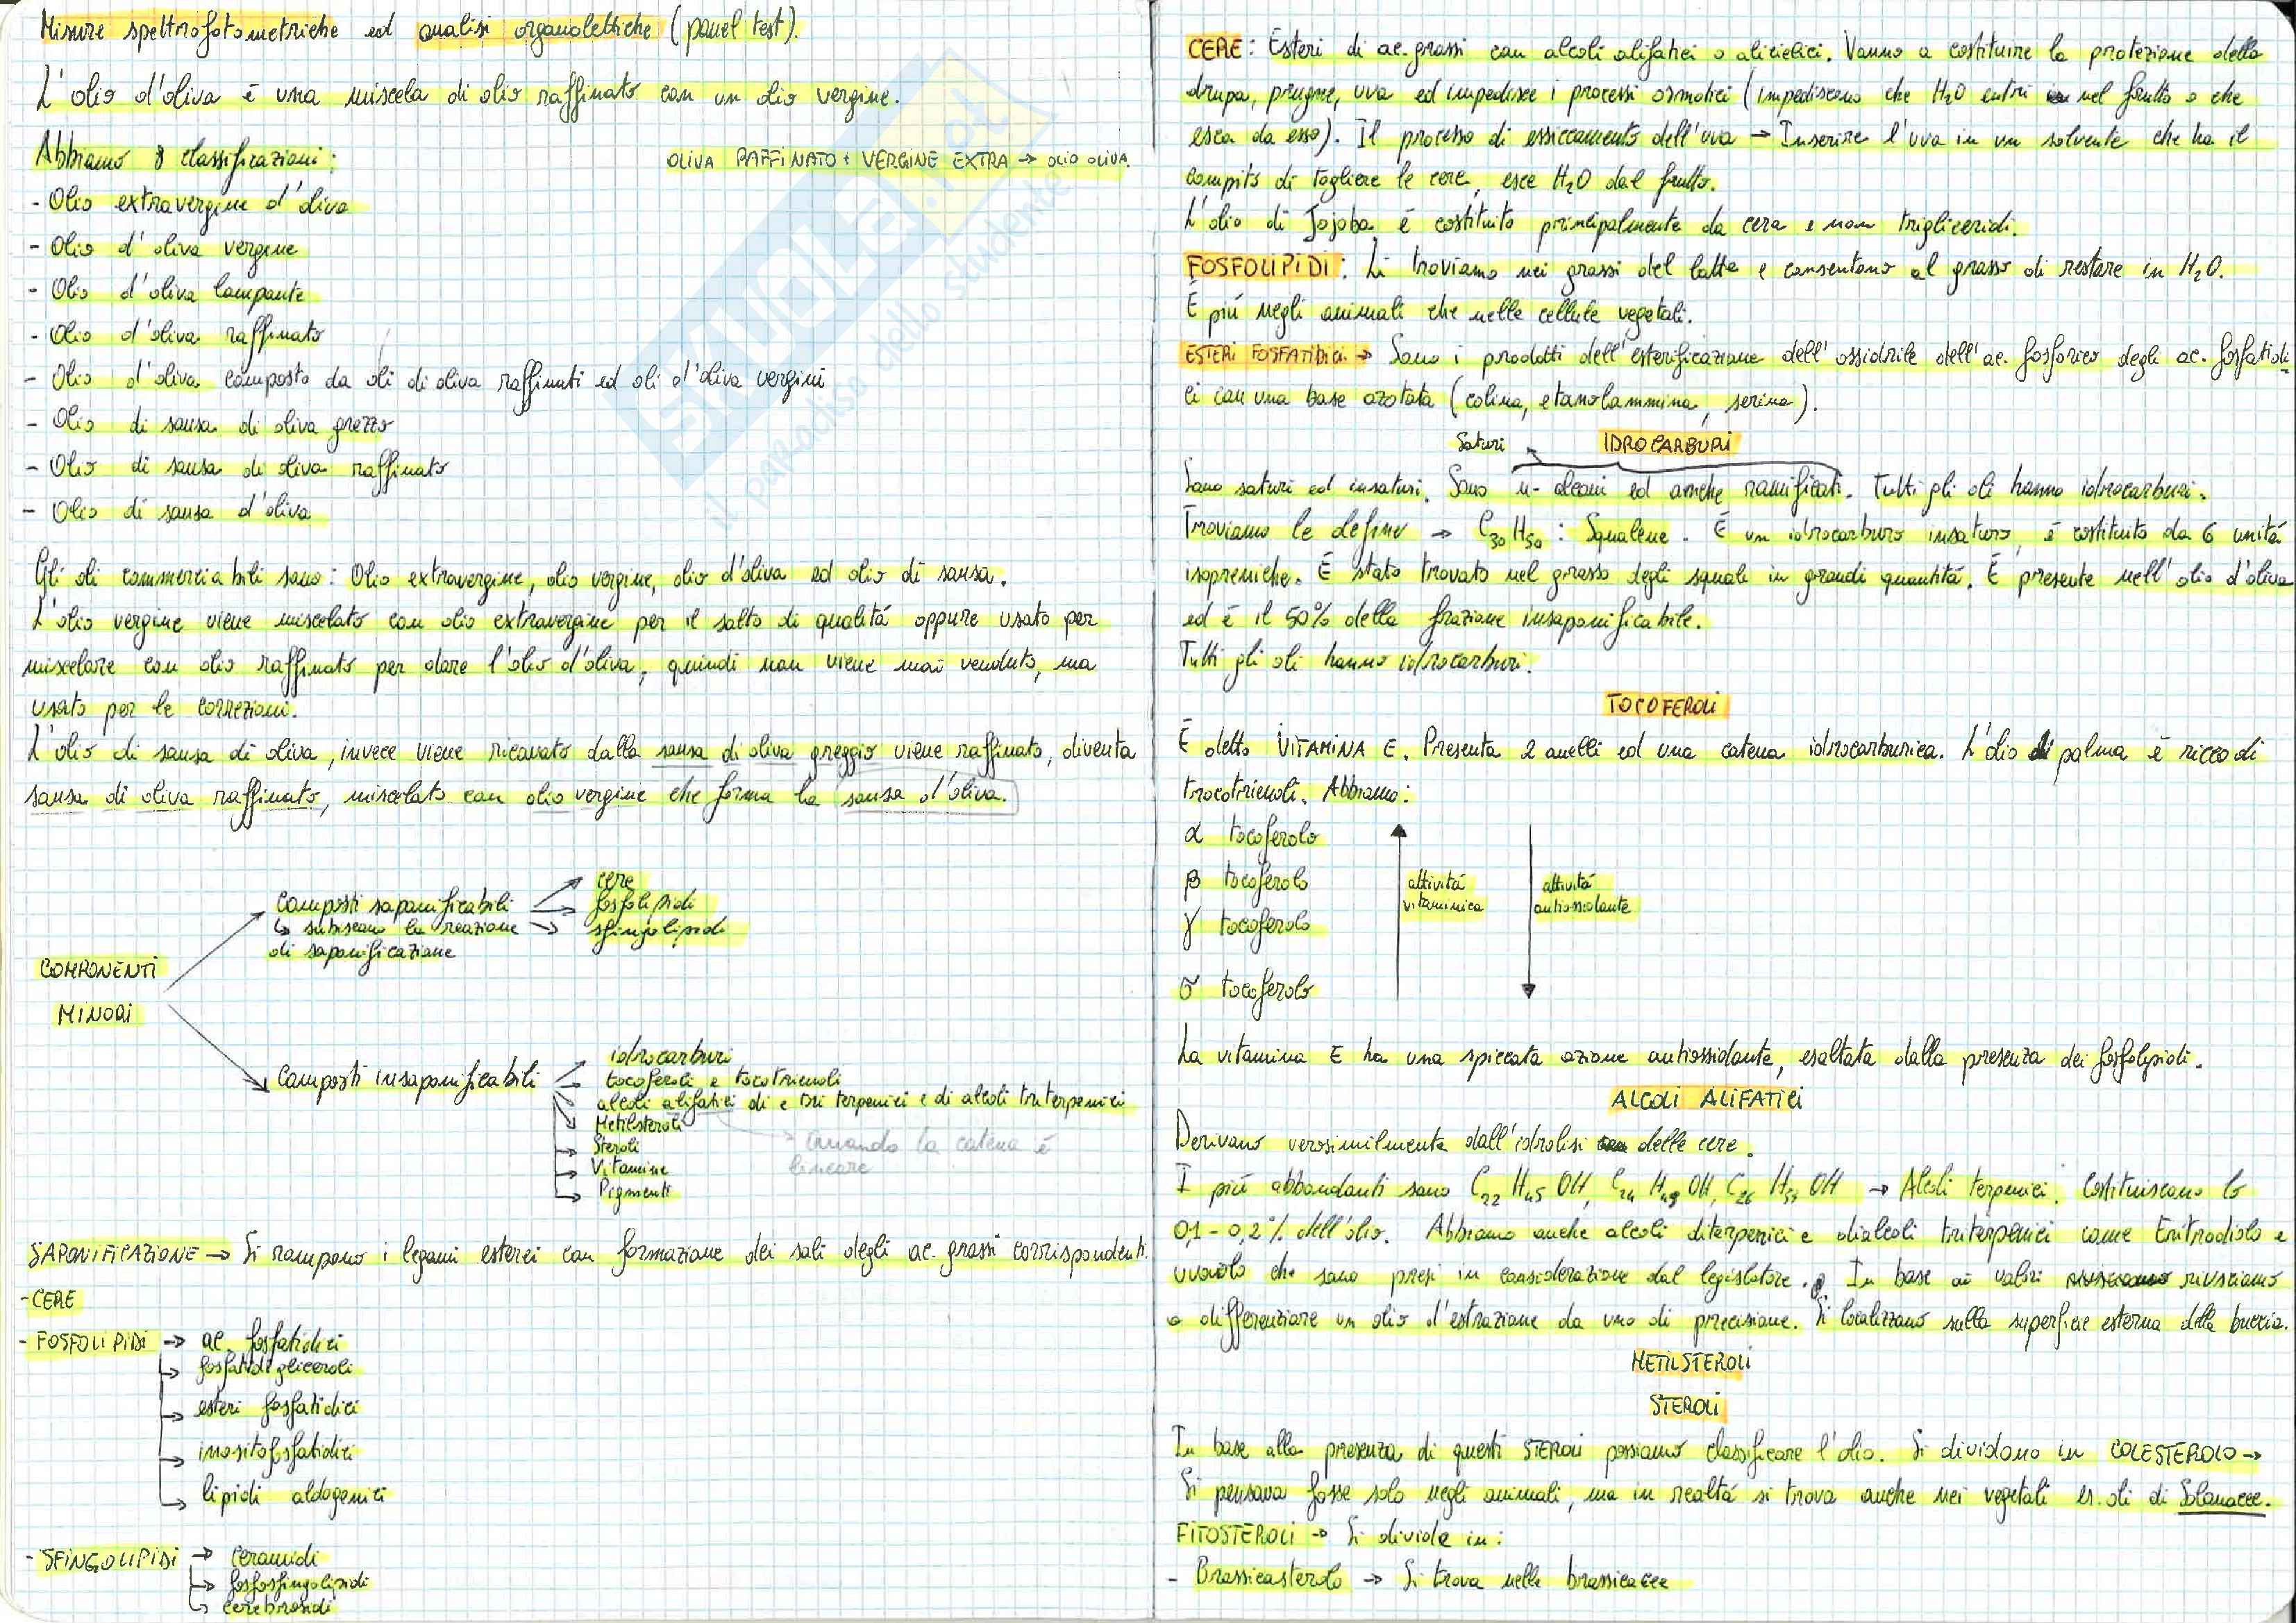 Misure spettrofotometriche ed analisi organolettiche (panel test).
L'olio d'oliva è una miscela di olio raffinato con un olio vergine.
Abbiamo 8 classificazioni:
OLIVA RAFFINATO + VERGINE EXTRA → OLIO OLIVA.
- Olio extravergine d'oliva
- Olio d'oliva vergine
- Olio d'oliva lampante
- Olio d'oliva raffinato
- Olio d'oliva composto da oli di oliva raffinati ed oli d'oliva vergini
- Olio di sansa di oliva grezzo
- Olio di sansa di oliva raffinato
- Olio di sansa d'oliva
Gli oli commerciabili sono: Olio extravergine, olio vergine, olio d'oliva ed olio di sansa.
L'olio vergine viene miscelato con olio extravergine per il salto di qualitá oppure usato per
miscelare con olio raffinato per dare l'olio d'oliva, quindi non viene mai venduto, ma
usato per le correzioni.
L'olio di sansa di oliva, invece viene ricavato dalla sansa di oliva greggio viene raffinato, diventa
sansa di oliva raffinato, miscelato con olio vergine che forma la sansa d'oliva.
COMPONENTI
MINORI
Composti saponificabili
↳ subiscono la reazione
di saponificazione
cere
fosfolipidi
sfingolipidi
Composti insaponificabili
idrocarburi
tocoferoli e tocotrienoli
alcoli alifatici di e tri terpenici e di alcoli triterpenici
Metilsteroli
Steroli
Vitamine
Pigmenti
Quando la catena è
lineare
SAPONIFICAZIONE → Si rompono i legami esterei con formazione dei sali degli ac. grassi corrispondenti.
- CERE
- FOSFOLIPIDI → ac. fosfatidici
↳ fosfatidigliceroli
→ esteri fosfatidici
→ inositofosfatidici
↳ lipidi aldogenici
- SFINGOLIPIDI → ceramidi
↳ fosfosfingolipidi
↳ cerebrosidi
scuola
il paradiso dello studente
CERE: Esteri di ac. grassi con alcoli alifatici o aliciclici. Vanno a costituire la protezione della
drupa, prugne, uva ed impedisce i processi osmotici (impediscono che H₂O entri nel frutto o che
esca da esso). Il processo di essiccamento dell'uva → Inserire l'uva in un solvente che ha il
compito di togliere le cere, esce H₂O dal frutto.
L'olio di Jojoba é costituito principalmente da cera e non trigliceridi.
FOSFOLIPIDI: Li troviamo nei grassi del latte e consentono al grasso di restare in H₂O.
È piú negli animali che nelle cellule vegetali.
ESTERI FOSFATIDICI → Sono i prodotti dell'esterificazione dell'ossidrile dell'ac. fosforico degli ac. fosfatidi-
ci con una base azotata (colina, etanolammina, serina).
Saturi
IDROCARBURI
Sono saturi ed insaturi. Sono n- alcani ed anche ramificati. Tutti gli oli hanno idrocarburi.
Troviamo le define → C₃₀H₅₀: Squalene. È un idrocarburo insaturo, é costituito da 6 unitá
isopreniche. È stato trovato nel grasso degli squali in grandi quantitá. È presente nell'olio d'oliva
ed é il 50% della frazione insaponificabile.
Tutti gli oli hanno idrocarburi.
TOCOFEROLI
È detto VITAMINA E. Presenta 2 anelli ed una catena idrocarburica. L'olio di palma é ricco di
trocotrienoli. Abbiamo:
α tocoferolo
β tocoferolo
γ tocoferolo
σ tocoferolo
attivitá
vitaminica
attivitá
antiossidante
La vitamina E ha una spiccata azione antiossidante, esaltata dalla presenza dei fosfolipidi.
ALCOLI ALIFATICI
Derivano verosimilmente dall'idrolisi delle cere.
I piú abbondanti sono C₂₂H₄₅OH, C₂₄H₄₉OH, C₂₆H₅₃OH → Alcoli terpenici. Costituiscono lo
0,1 - 0,2% dell'olio. Abbiamo anche alcoli diterpenici e dialcoli triterpenici come eritrodiolo e
uvaolo che sono presi in considerazione dal legislatore. In base ai valori riusciamo
a differenziare un olio d'estrazione da uno di precisione. Si localizzano sulla superficie esterna della buccia.
METILSTEROLI
STEROLI
In base alla presenza di questi STEROLI possiamo classificare l'olio. Si dividono in COLESTEROLO →
Si pensava fosse solo negli animali, ma in realtá si trova anche nei vegetali es. oli di Solanacee.
FITOSTEROLI → Si divide in:
- Brassicasterolo → Si trova nelle brassicacee